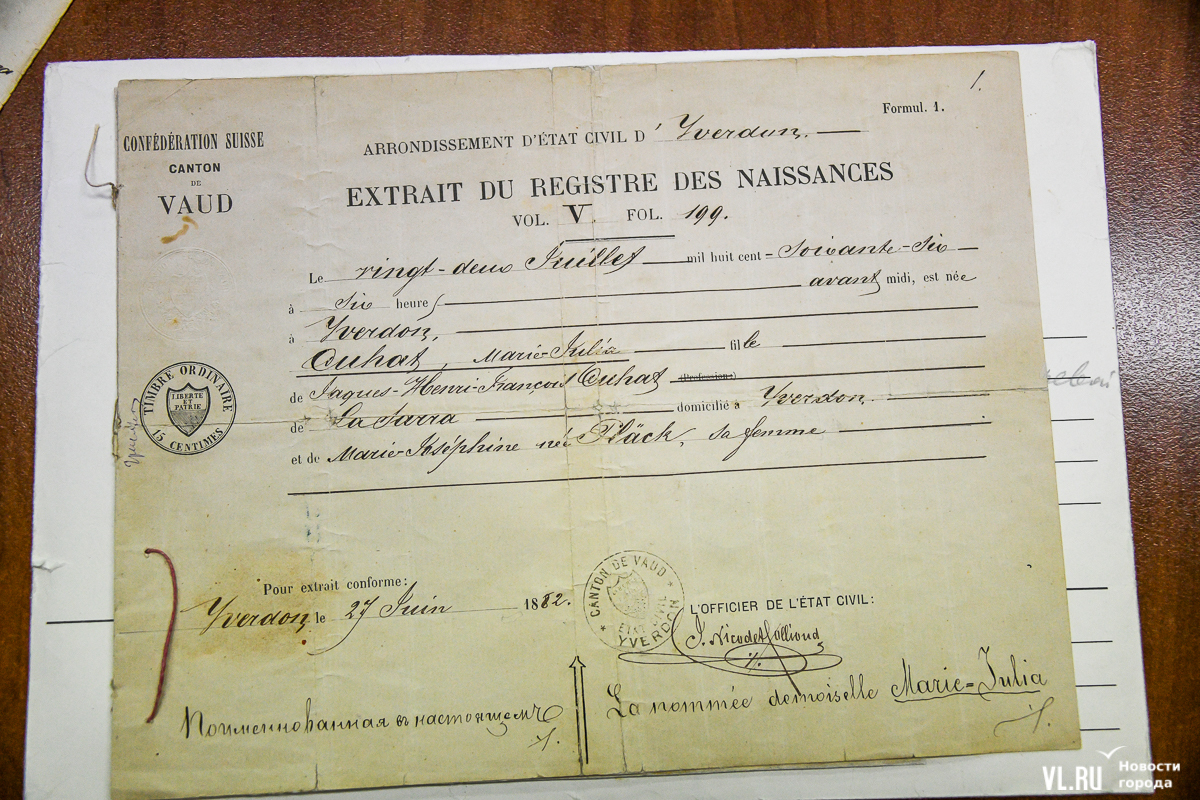 1.
Formul. 1.
CONFÉDÉRATION SUISSE
CANTON
DE
VAUD
ARRONDISSEMENT D'ÉTAT CIVIL D' Yverdon.
EXTRAIT DU REGISTRE DES NAISSANCES
VOL. V. FOL. 199.
Le vingt-deux Juillet mil huit cent soixante-six
à six heures avant midi, est née
à Yverdon,
Cuhat, Marie-Julia fille
de Jaques-Henri-François Cuhat (Profession)
de La Sarra domicilié à Yverdon.
et de Marie-Joséphine née Fläck, sa femme
TIMBRE ORDINAIRE
LIBERTÉ
ET
PATRIE
15 CENTIMES
Pour extrait conforme:
Yverdon le 27 Juin 1882.
CANTON DE VAUD
ETAT CIVIL
YVERDON
L'OFFICIER DE L'ÉTAT CIVIL:
Поименнованная въ настоящемъ
La nommée demoiselle Marie-Julia
VL.RU Новости
города